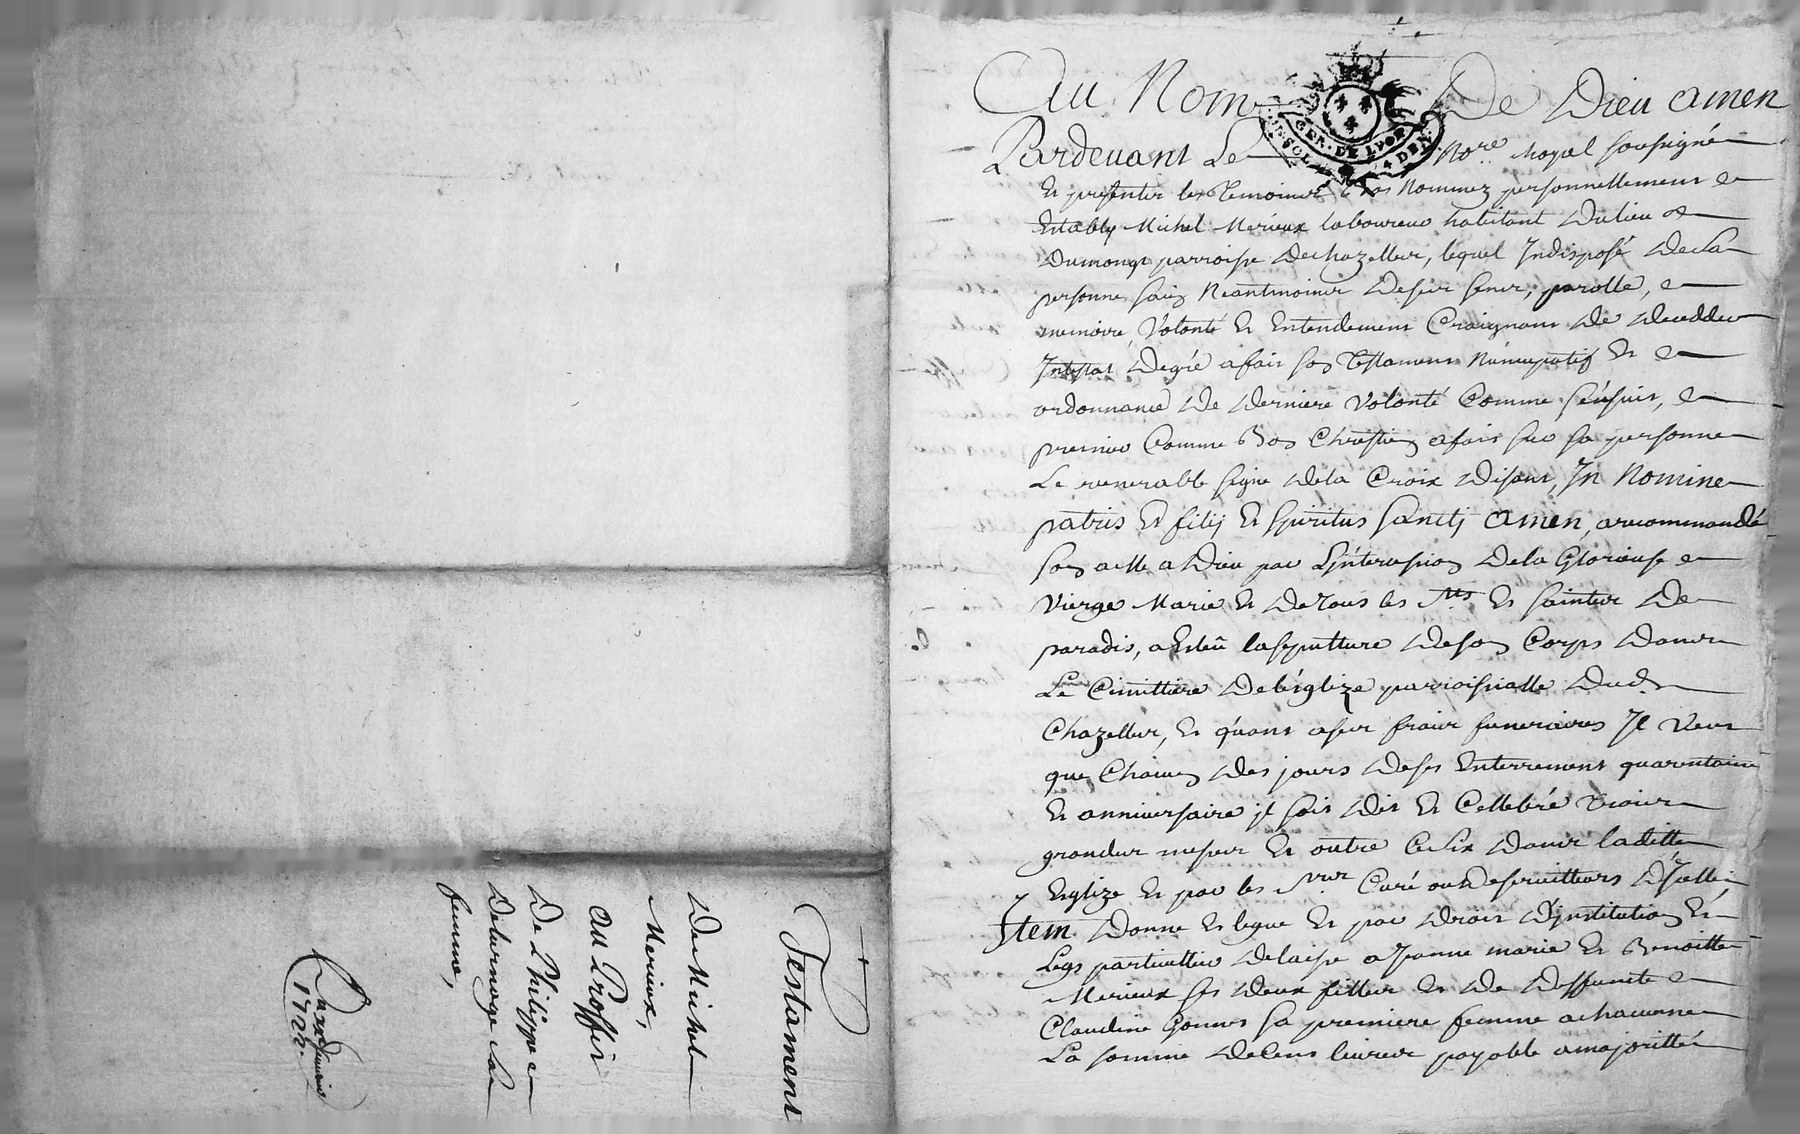 Testament
De Michel
Merieux,
au Proffit
De Philippe
Delurnage sa
femme,
1722.
Au Nom De Dieu amen
GEN. DE LYON
Pardevant Le No.re Royal soussigné
Et presentes les Temoines Bas Nommez personnellement
Estably Michel Merieux laboureur habitant Du lieu
Dumongt parroisse De chazelles, lequel Indisposé De sa
personne sain Neantmoines De ses sens, parolle,
memoire, Volonté Et Entendement Craignant De Decedder
Intestat De gré a fait son Testament Nuncupatif Et
ordonnance De Derniere Volonté Comme s'ensuit,
premier Comme Bon Chrestien a fait sur sa personne
Le venerable signe De la Croix Disant, In Nomine
patris Et filij Et spiritus sanctj Amen, a recommandé
son ame a Dieu par L'intercession De la Glorieuse
Vierge Marie Et De Tous les Sts Et saintes De
paradis, a Esleu la sepulture De son Corps Dans
Le Cimittiere De l'églize parroissialle Dud.
Chazelles, Et quant a ses frais funeraires Il veut
que Chaiun Des jours De ses Enterrement quarantaine
Et anniversaire il soit Dit Et Cellebré Trois
grandes messes Et outre Ce six Dans laditte
Esglize Et par les Srs Curé ou Deserviteurs D'jcelle
Item Donne Et legue Et par Droit D'institution Et
Legs particullier Delaisse a Jeanne marie Et Benoitte
Merieux ses Deux filles Et De Deffunte
Claudine Gonnet sa premiere femme a chacunne
La somme De Cent livres payable a majoritté